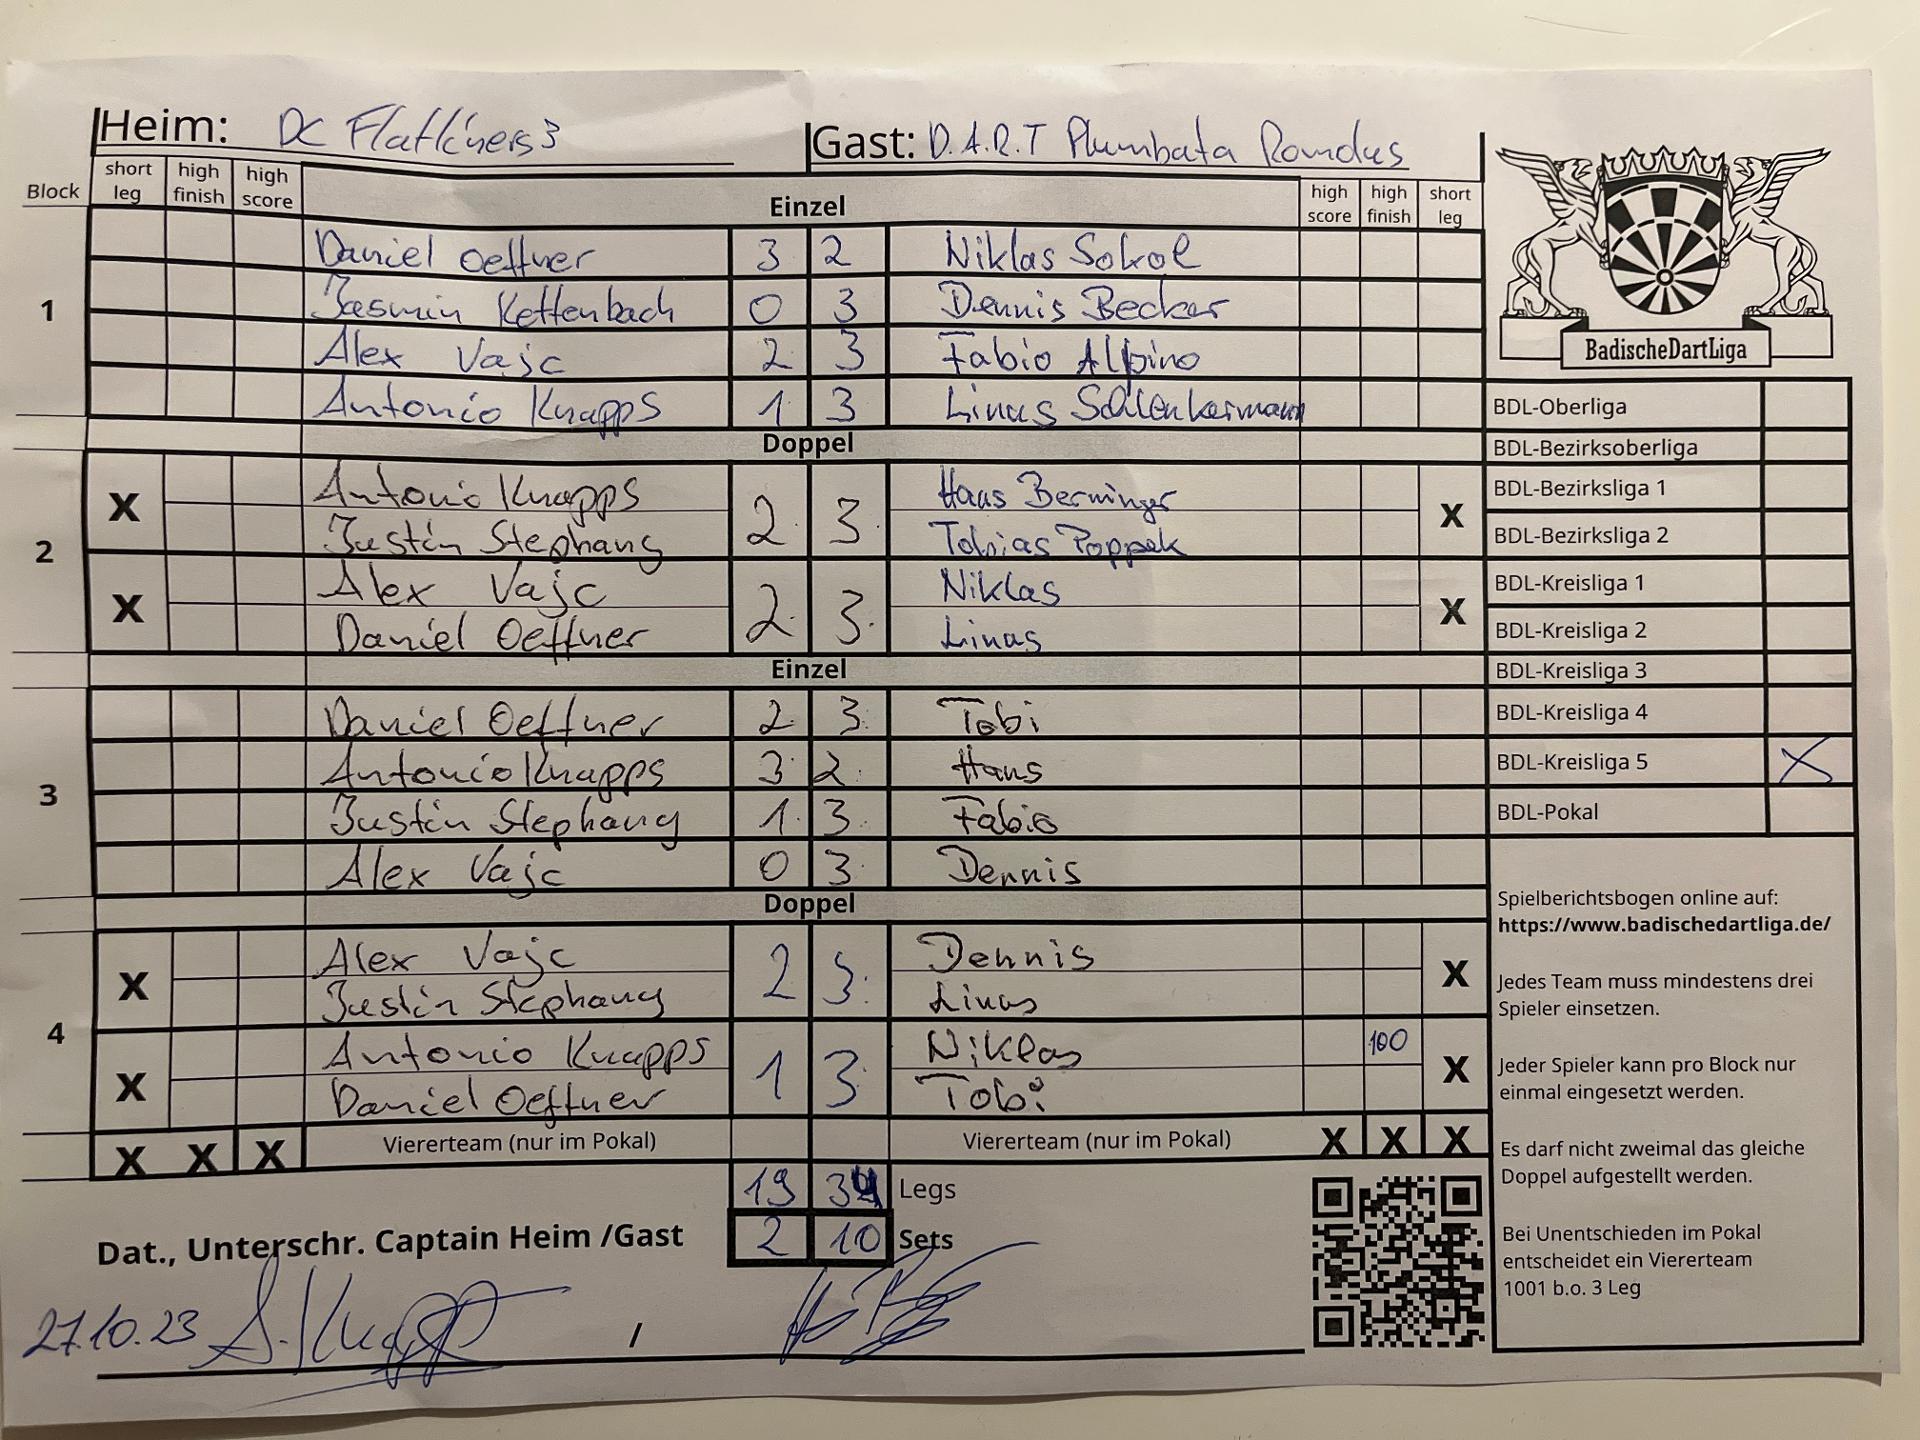 Heim: DC Flatliners 3 Gast: D.A.R.T Plumbata Romdus
Block short leg high finish high score Einzel high score high finish short leg
1
Daniel Oeffner 3 2 Niklas Sokol
Jasmin Kettenbach 0 3 Dennis Becker
Alex Vajc 2 3 Fabio Alpino
Antonio Knapps 1 3 Linus Schlenkermann
Doppel
2
X Antonio Knapps 2 3 Hans Berninger X
Justin Stephany Tobias Poppek
X Alex Vajc 2 3 Niklas X
Daniel Oeffner Linus
Einzel
3
Daniel Oeffner 2 3 Tobi
Antonio Knapps 3 2 Hans
Justin Stephany 1 3 Fabio
Alex Vajc 0 3 Dennis
Doppel
4
X Alex Vajc 2 3 Dennis X
Justin Stephany Linus
X Antonio Knapps 1 3 Niklas 100 X
Daniel Oeffner Tobi
X X X Viererteam (nur im Pokal) Viererteam (nur im Pokal) X X X
19 34 Legs
Dat., Unterschr. Captain Heim /Gast 2 10 Sets
27.10.23 A. Knapp /
BadischeDartLiga
BDL-Oberliga
BDL-Bezirksoberliga
BDL-Bezirksliga 1
BDL-Bezirksliga 2
BDL-Kreisliga 1
BDL-Kreisliga 2
BDL-Kreisliga 3
BDL-Kreisliga 4
BDL-Kreisliga 5 X
BDL-Pokal
Spielberichtsbogen online auf:
https://www.badischedartliga.de/
Jedes Team muss mindestens drei
Spieler einsetzen.
Jeder Spieler kann pro Block nur
einmal eingesetzt werden.
Es darf nicht zweimal das gleiche
Doppel aufgestellt werden.
Bei Unentschieden im Pokal
entscheidet ein Viererteam
1001 b.o. 3 Leg